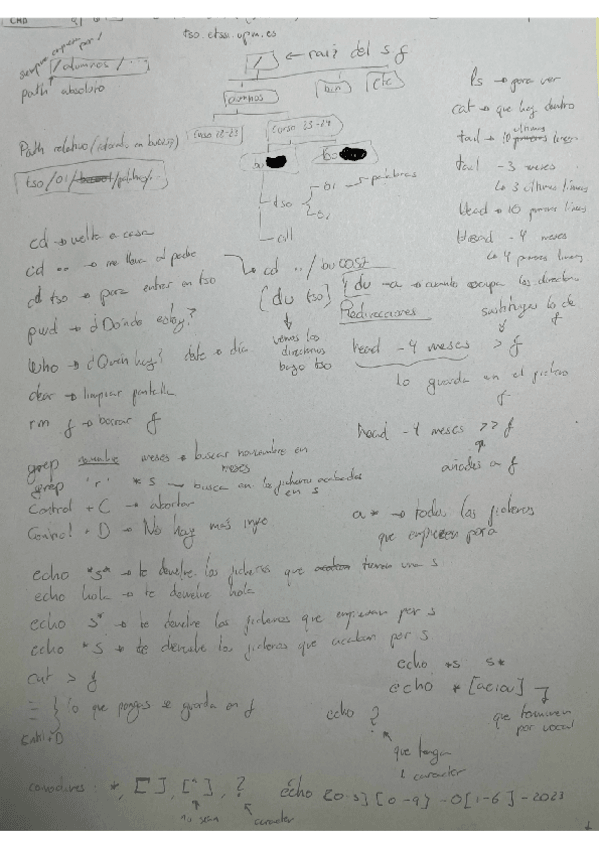 tso.etsii.upm.es
siempre empieza por /
/alumnos/...
path absoluto
/ ← raiz del s.f
alumnos bin etc
Curso 22-23 Curso 23-24
Path relativo
tso/01/ /palabras/..
tso
01 → 5 palabras
call
ls → para ver
cat → que hay dentro
tail → 10 últimas líneas
tail -3 meses
↳ 3 últimas líneas
Head → 10 primeras líneas
Head -4 meses
↳ 4 primeras líneas
cd → vuelta a casa
cd .. → me lleva al padre
cd tso → para entrar en tso
pwd → ¿Dónde estoy?
who → ¿Quién hay? date → día
clear → limpiar pantalla
rm f → borrar f
↳ cd ../bu0057
[du tso] du -a → cuanto ocupa los directorios
vemos los directorios bajo tso
Redirecciones
sustituyes lo de f
head -4 meses > f
lo guarda en el fichero f
head -4 meses >> f
añades a f
grep noviembre meses → buscar noviembre en meses
grep 'r' *s → busca en los ficheros acabados en s
Control + C → abortar
Control + D → No hay más
a* → todos los ficheros
que empiecen por a
echo *s* → te devuelve los ficheros que tienen una s
echo hola → te devuelve hola
echo s* → te devuelve los ficheros que empiezan por s
echo *s → te devuelve los ficheros que acaban por s
cat > f
lo que pongas se guarda en f
Control+D
echo *s s*
echo *[aeiou]
que terminen por vocal
echo ?
que tengan 1 caracter
comodines: *, [ ], [^ ], ?
no sean
caracter
echo [0-3][0-9]-0[1-6]-2023